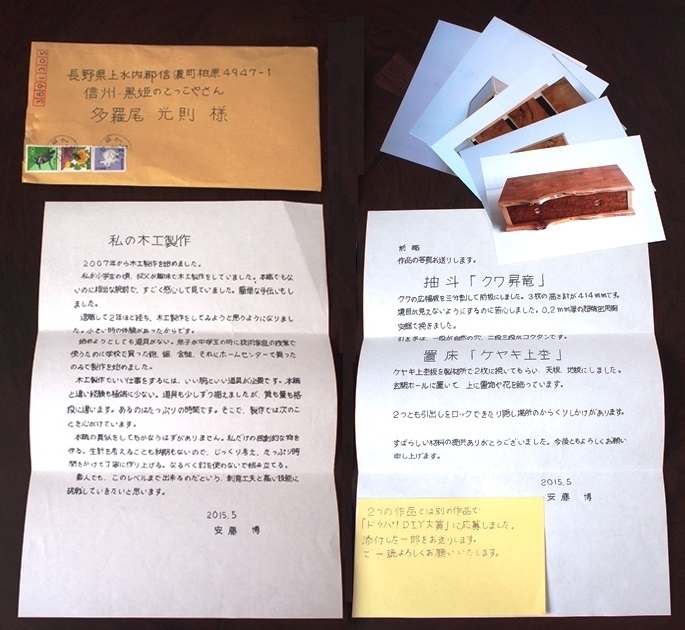 3891305
長野県上水内郡信濃町柏原4947-1
信州・黒姫のとっこやさん
多羅尾 光則 様
私の木工製作
2007年から木工製作を始めました。
私が小学生の頃、叔父が趣味で木工製作をしていました。本職でもな
いのに相当な腕前で、すごく感心して見ていました。簡単な手伝いもし
ました。
退職して2年ほど経ち、木工製作をしてみようと思うようになりまし
た。小さい時の体験があったからです。
始めようとしても道具がない。息子が中学生の時に技術家庭の授業で
使うために学校で買った鉋、鋸、金槌、それにホームセンターで買った
のみで製作を始めました。
木工製作でいい仕事をするには、いい腕といい道具が必要です。本職
と違い経験も極端に少ない。道具も少しずつ揃えましたが、質も量も格
段に違います。あるのはたっぷりの時間です。そこで、製作では次のこ
とを心がけています。
本職の真似をしてもかなうはずがありません。私だけの独創的な物を
作る。生計を考えることも納期もないので、じっくり考え、たっぷり時
間をかけて丁寧に作り上げる。なるべく釘を使わないで組み立てる。
素人でも、このレベルまで出来るのだという、創意工夫と高い技能に
挑戦していきたいと思います。
2015.5
安藤 博
前略
作品の写真お送りします。
抽斗「クワ昇竜」
クワの広幅板を三分割して前板にしました。3枚の高さ計が414mmです。
境目が見えないようにするのに苦心しました。0.2mm厚の超精密用胴
突鋸で挽きました。
引き手は、一段が自然の穴、二段三段がコクタンです。
置床「ケヤキ上杢」
ケヤキ上杢板を製材所で2枚に挽いてもらい、天板、地板にしました。
玄関ホールに置いて、上に置物や花を飾っています。
2つとも引出しをロックできたり隠し場所のからくりしかけがあります。
すばらしい材料の提供ありがとうございました。今後ともよろしくお願い
申し上げます。
2015.5
安藤 博
2つの作品とは別の作品で
「ドゥーパ!DIY大賞」に応募しました。
添付した一部をお送りします。
ご一読よろしくお願いいたします。